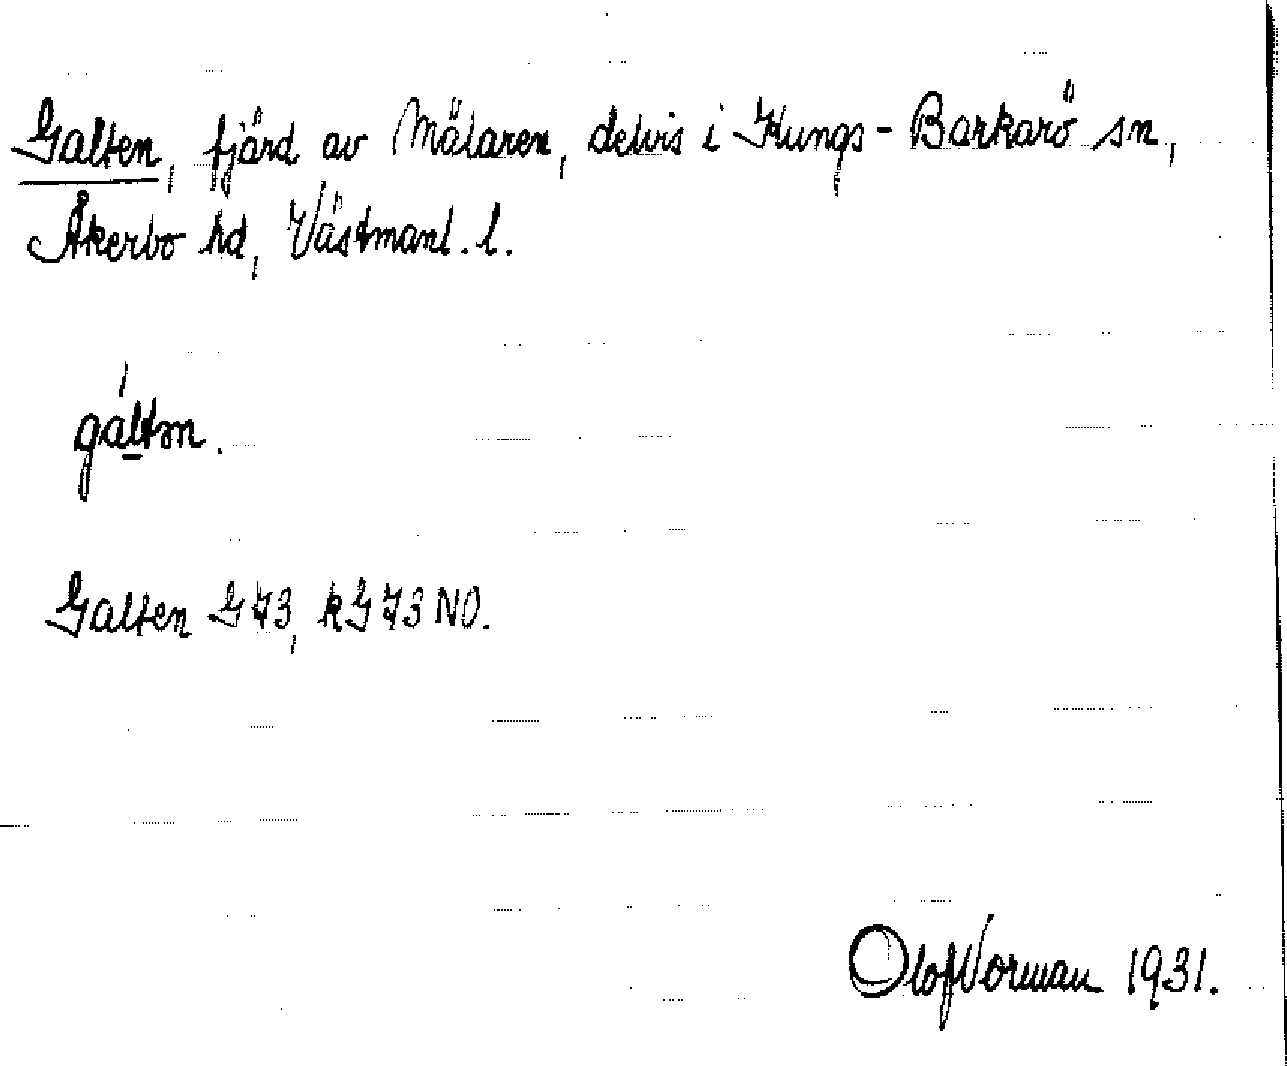 Galten, fjärd av Mälaren, delvis i Kungs-Barkarö sn,
Åkerbo hd, Västmanl. l.
gáltən.
Galten G73, kG73NO.
Olof Norman 1931.